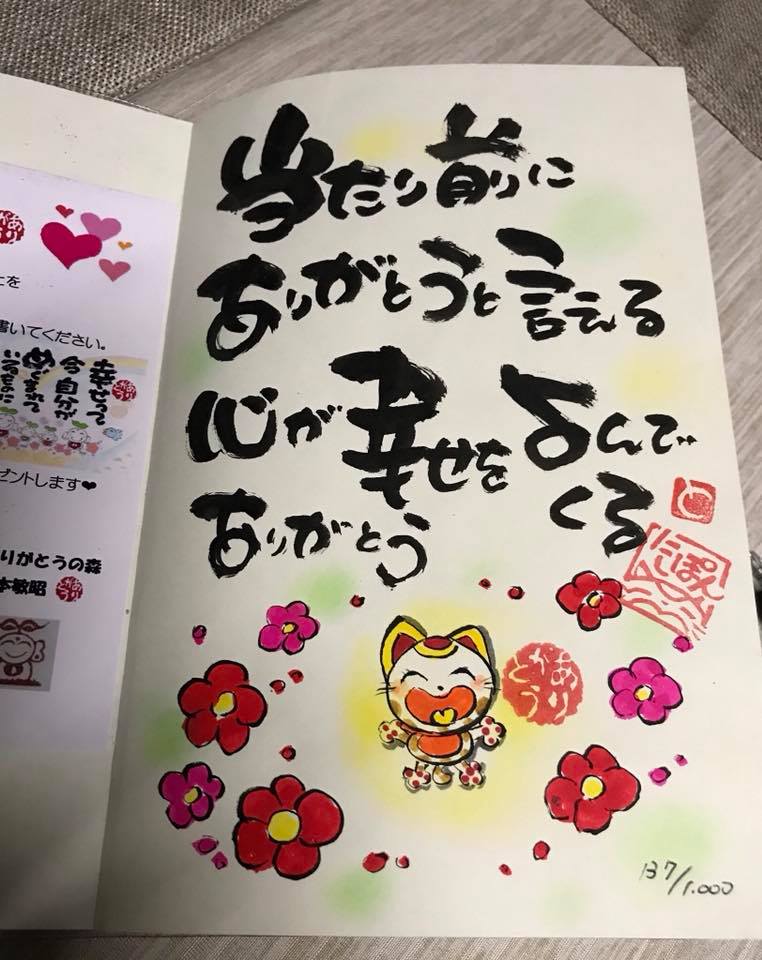 を
書いてください。
幸せって
今自分が
めぐまれて
いるものに
ゼントします❤
りがとうの森
本敏昭
ありがとう
当たり前に
ありがとうと言える
心が幸せをよんで
くる
ありがとう
ありがとう
137/1.000